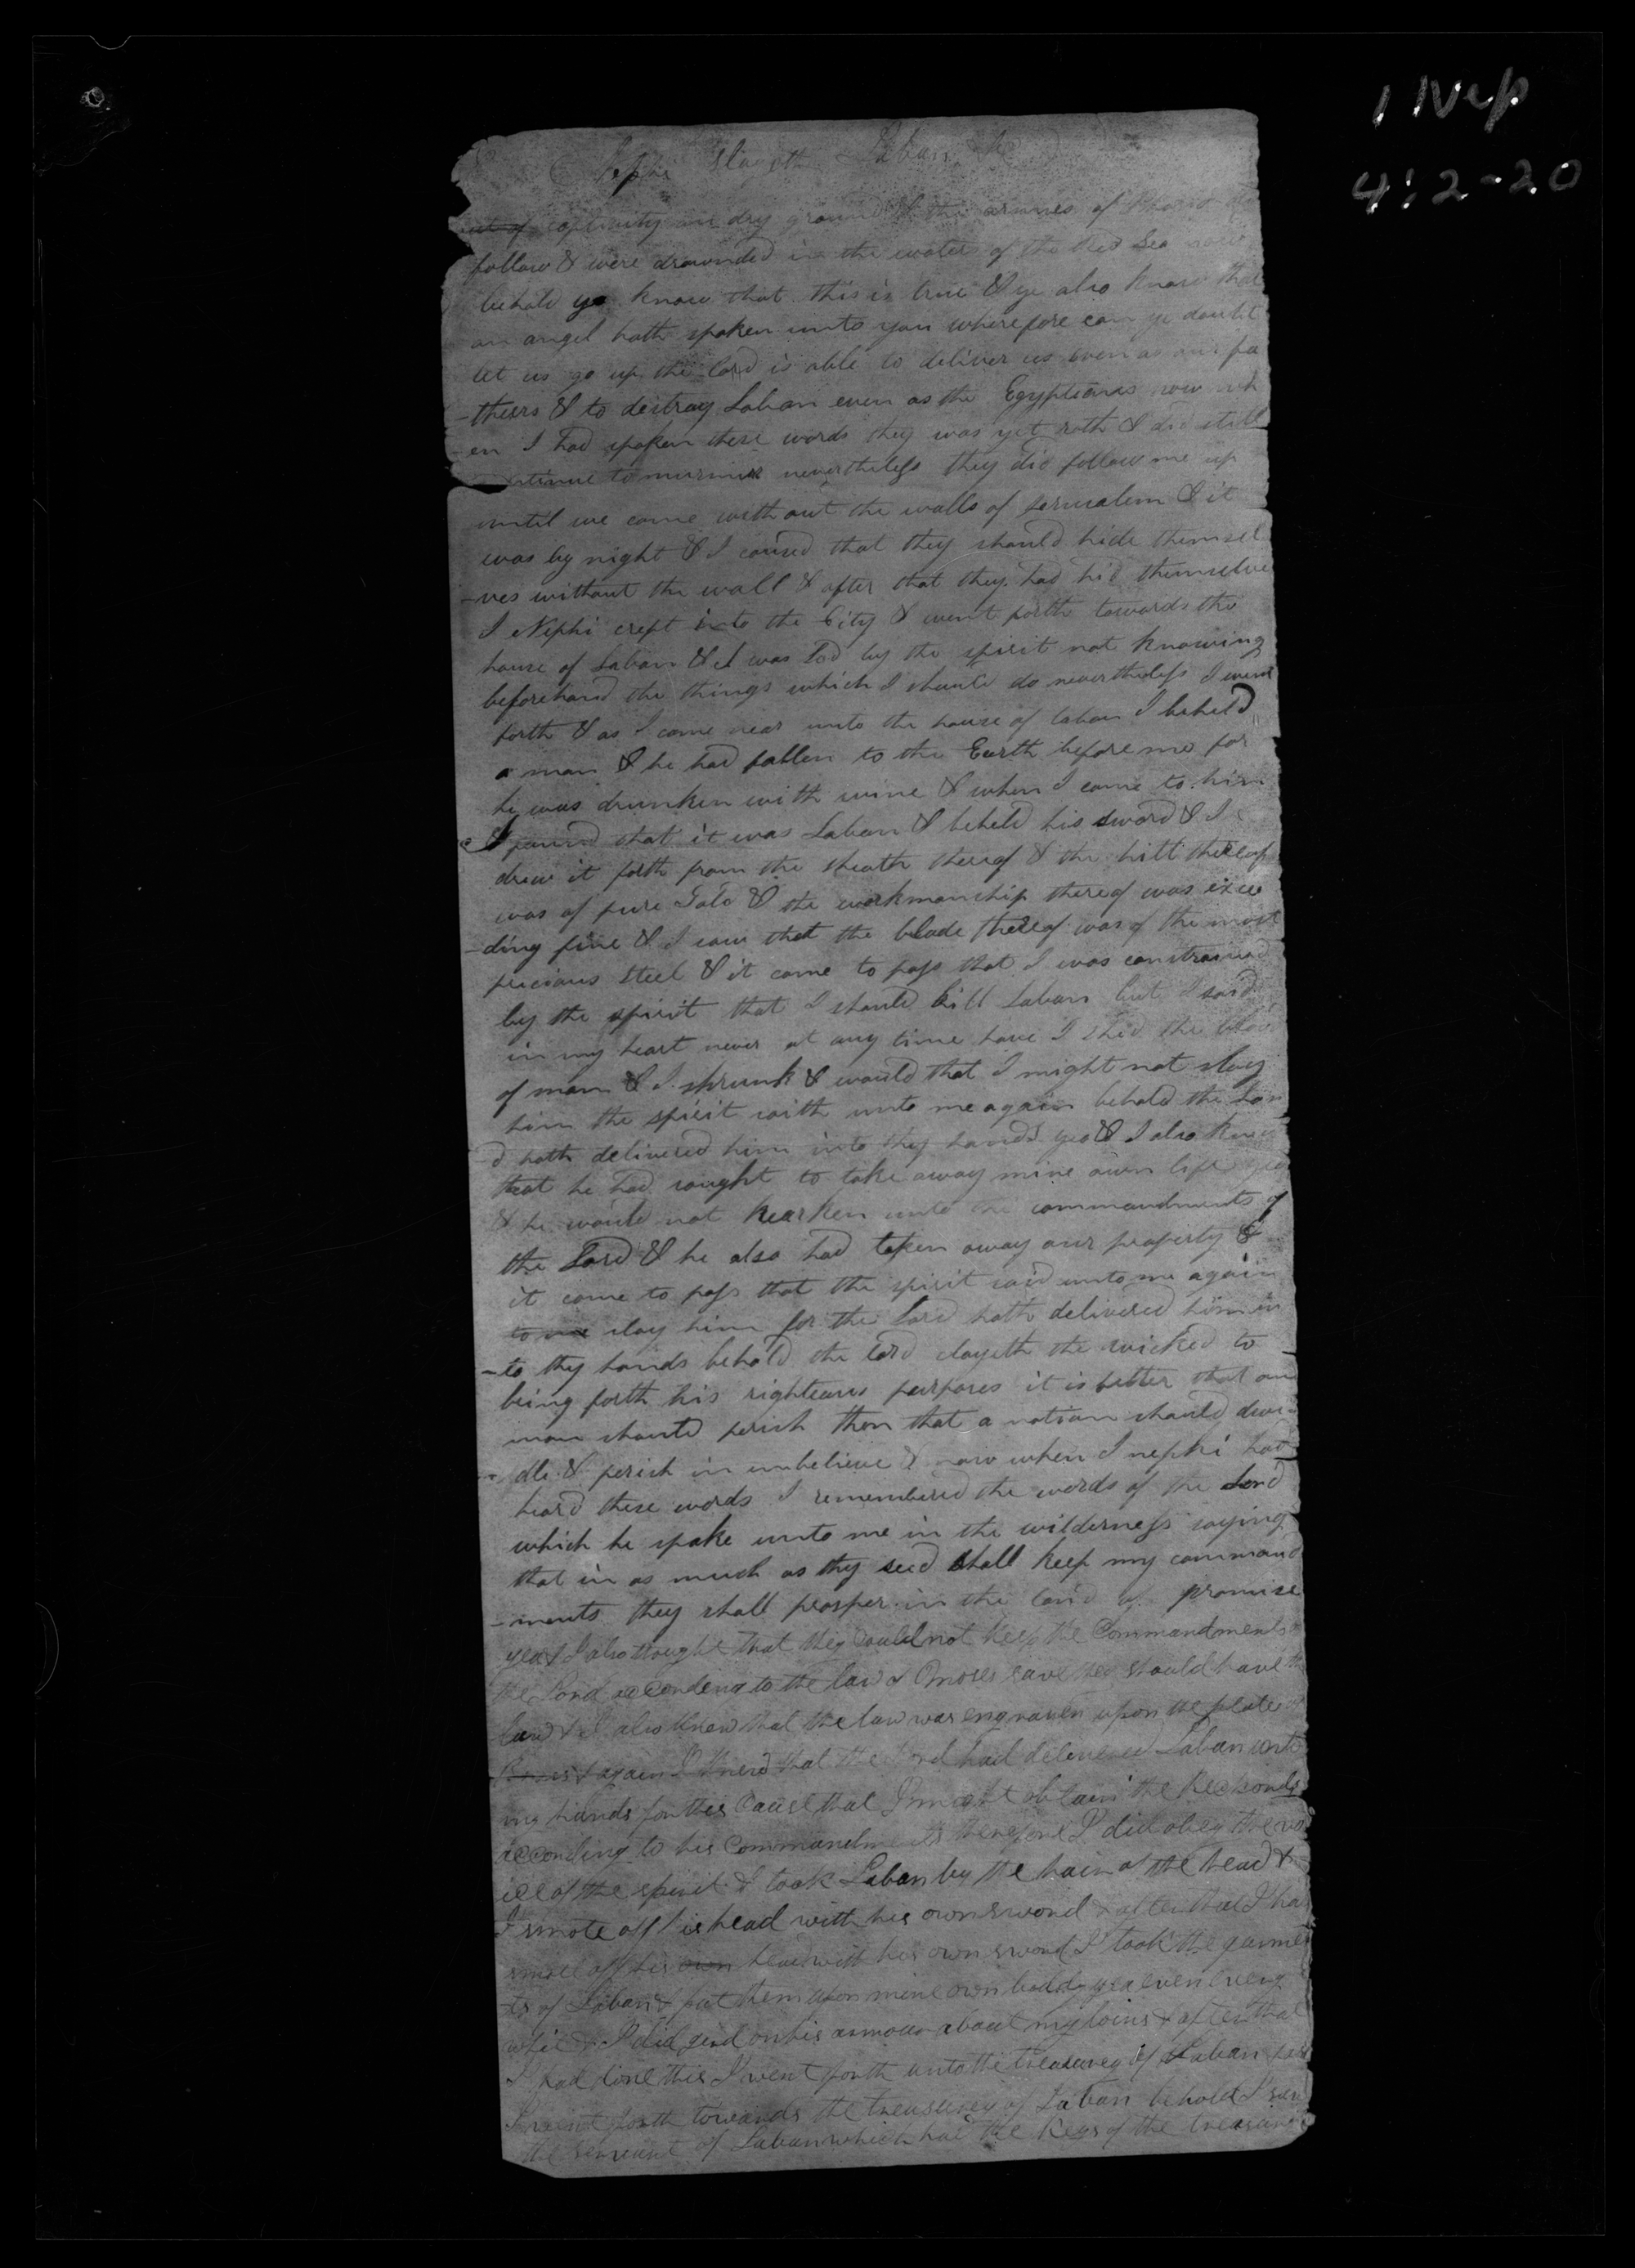 1 Nep
4:2-20
Nephi Slayeth Laban &c
out of captivity on dry ground & the armies of Pharaoh did
follow & were drownded in the waters of the Red Sea now
behold ye know that this is true & ye also know that
an angel hath spoken unto you wherefore can ye doubt
let us go up the lord is able to deliver us even as our fa
-thers & to destroy Laban even as the Egyptians now wh
-en I had spoken these words they was yet roth & did still
continue to murmur nevertheless they did follow me up
until we came without the walls of Jerusalem & it
was by night & I caused that they should hide themsel
-ves without the wall & after that they had hid themselve
I Nephi crept into the City & went forth towards the
house of Laban & I was Led by the spirit not knowing
beforehand the things which I should do nevertheless I went
forth & as I came near unto the house of laban I beheld
a man & he had fallen to the Earth before me for
he was drunken with wine & when I came to him
I found that it was Laban & I beheld his sword & I
drew it forth from the sheath thereof & the hilt thereof
was of pure Gold & the workmanship thereof was excee
-ding fine & I saw that the blade thereof was of the most
precious steel & it came to pass that I was constrained
by the spirit that I should kill Laban but I said
in my heart never at any time have I shed the blood
of man & I shrunk & would that I might not slay
him the spirit saith unto me again behold the Lor
-d hath delivered him into thy hands yea & I also knew
that he had sought to take away mine own life yea
& he would not hearken unto the commandments of
the Lord & he also had taken away our property &
it came to pass that the spirit said unto me again
to me slay him for the lord hath delivered him in
-to thy hands behold the lord slayeth the wicked to
bring forth his righteous purposes it is better that one
man should perish then that a nation should dwin-
-dle & perish in unbelieve & now when I nephi had
heard these words I remembered the words of the Lord
which he spake unto me in the wilderness saying
that in as much as thy seed shall keep my command
-ments they shall prosper in the land of promise
yea & I also thought that they could not keep the Commandments of
the Lord according to the law of moses save they should have the
law & I also knew that the law was engraven upon the plates of
Brass & again I knew that the Lord had delivered Laban unto
my hands for this cause that I might obtain the Reckords
according to his commandments therefore I did obey the vo
ice of the spirit & took Laban by the hair of the head &
I smote off his head with his own sword & after that I had
smote off his own head with his own sword I took the garmen
-ts of Laban & put them upon mine own body yea even every
whit & I did gird on his armour about my loins & after that
I had done this I went forth unto the treasurey of Laban
I went forth towards the treasurey of Laban behold I saw
the servant of Laban which had the keys of the treasurey